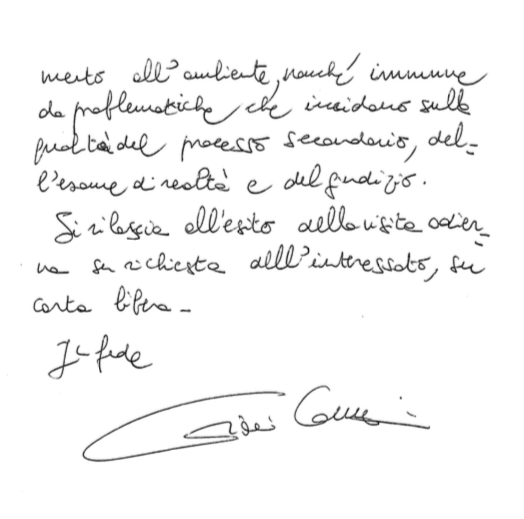 mento all'ambiente, nonché immune
da problematiche che incidano sulla
qualità del processo secondario, del=
l'esame di realtà e del giudizio.
Si rilascia all'esito della visita odier=
na su richiesta dell'interessato, su
carta libera -
In fede